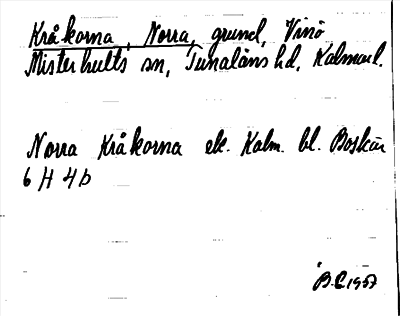 Kråkorna, Norra, grund, Vinö
Misterhults sn, Tunaläns hd, Kalmarl.
Norra Kråkorna ek. Kalm. bl. Boskär
6 H 4 b
1957